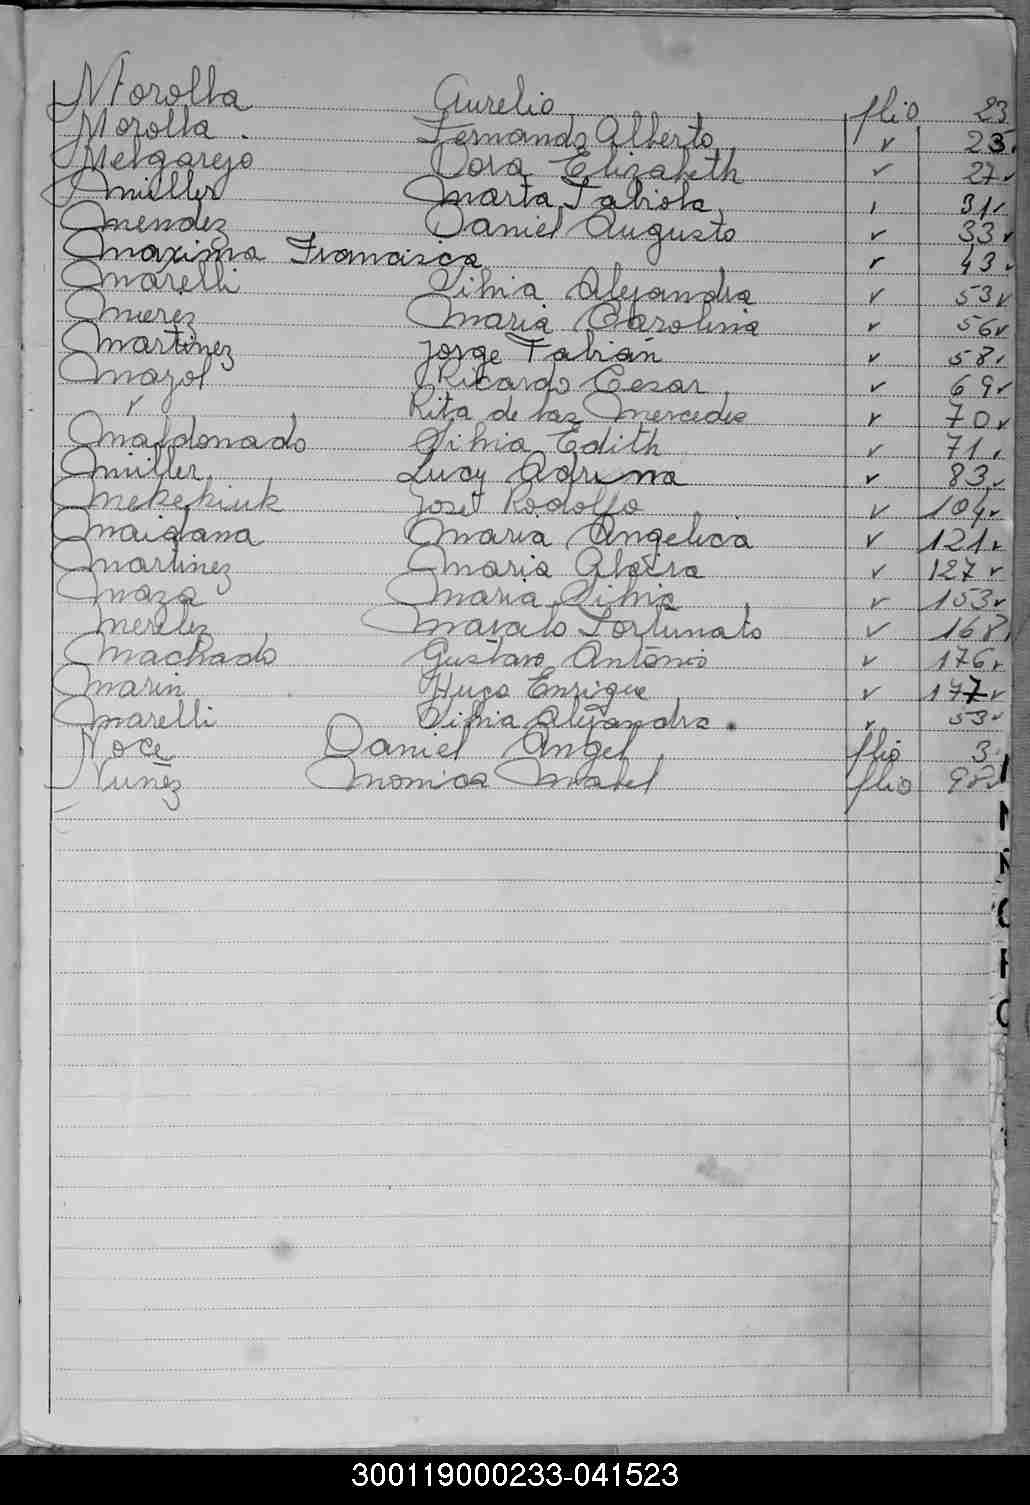 Morolla Aurelio flio 23
Morolla Fernando Alberto v 25
Melgarejo Dora Elizabeth v 27 v
Miller Marta Fabiola 31 v
Mendez Daniel Augusto v 33 v
Maxima Francisca v 43 v
Marelli Silvia Alejandra v 53 v
Mierez Maria Carolina v 56 v
Martinez Jorge Fabián v 58
Mazol Ricardo Cesar v 69 v
v Rita de las Mercedes v 70 v
Maldonado Silvia Edith v 71
Miller Lucy Adriana v 83 v
José Rodolfo v 104 v
Maidana Maria Angelica v 121 v
Martinez Maria v 127 v
Maza Maria Silvia v 153 v
Fortunato v 168
Machado Gustavo Antonio v 176 v
Marin Hugo Enrique v 177 v
Marelli Silvia Alejandra v 53 v
Noce Daniel Angel flio 3
Nuñez Monica Mabel flio 98 v
300119000233-041523